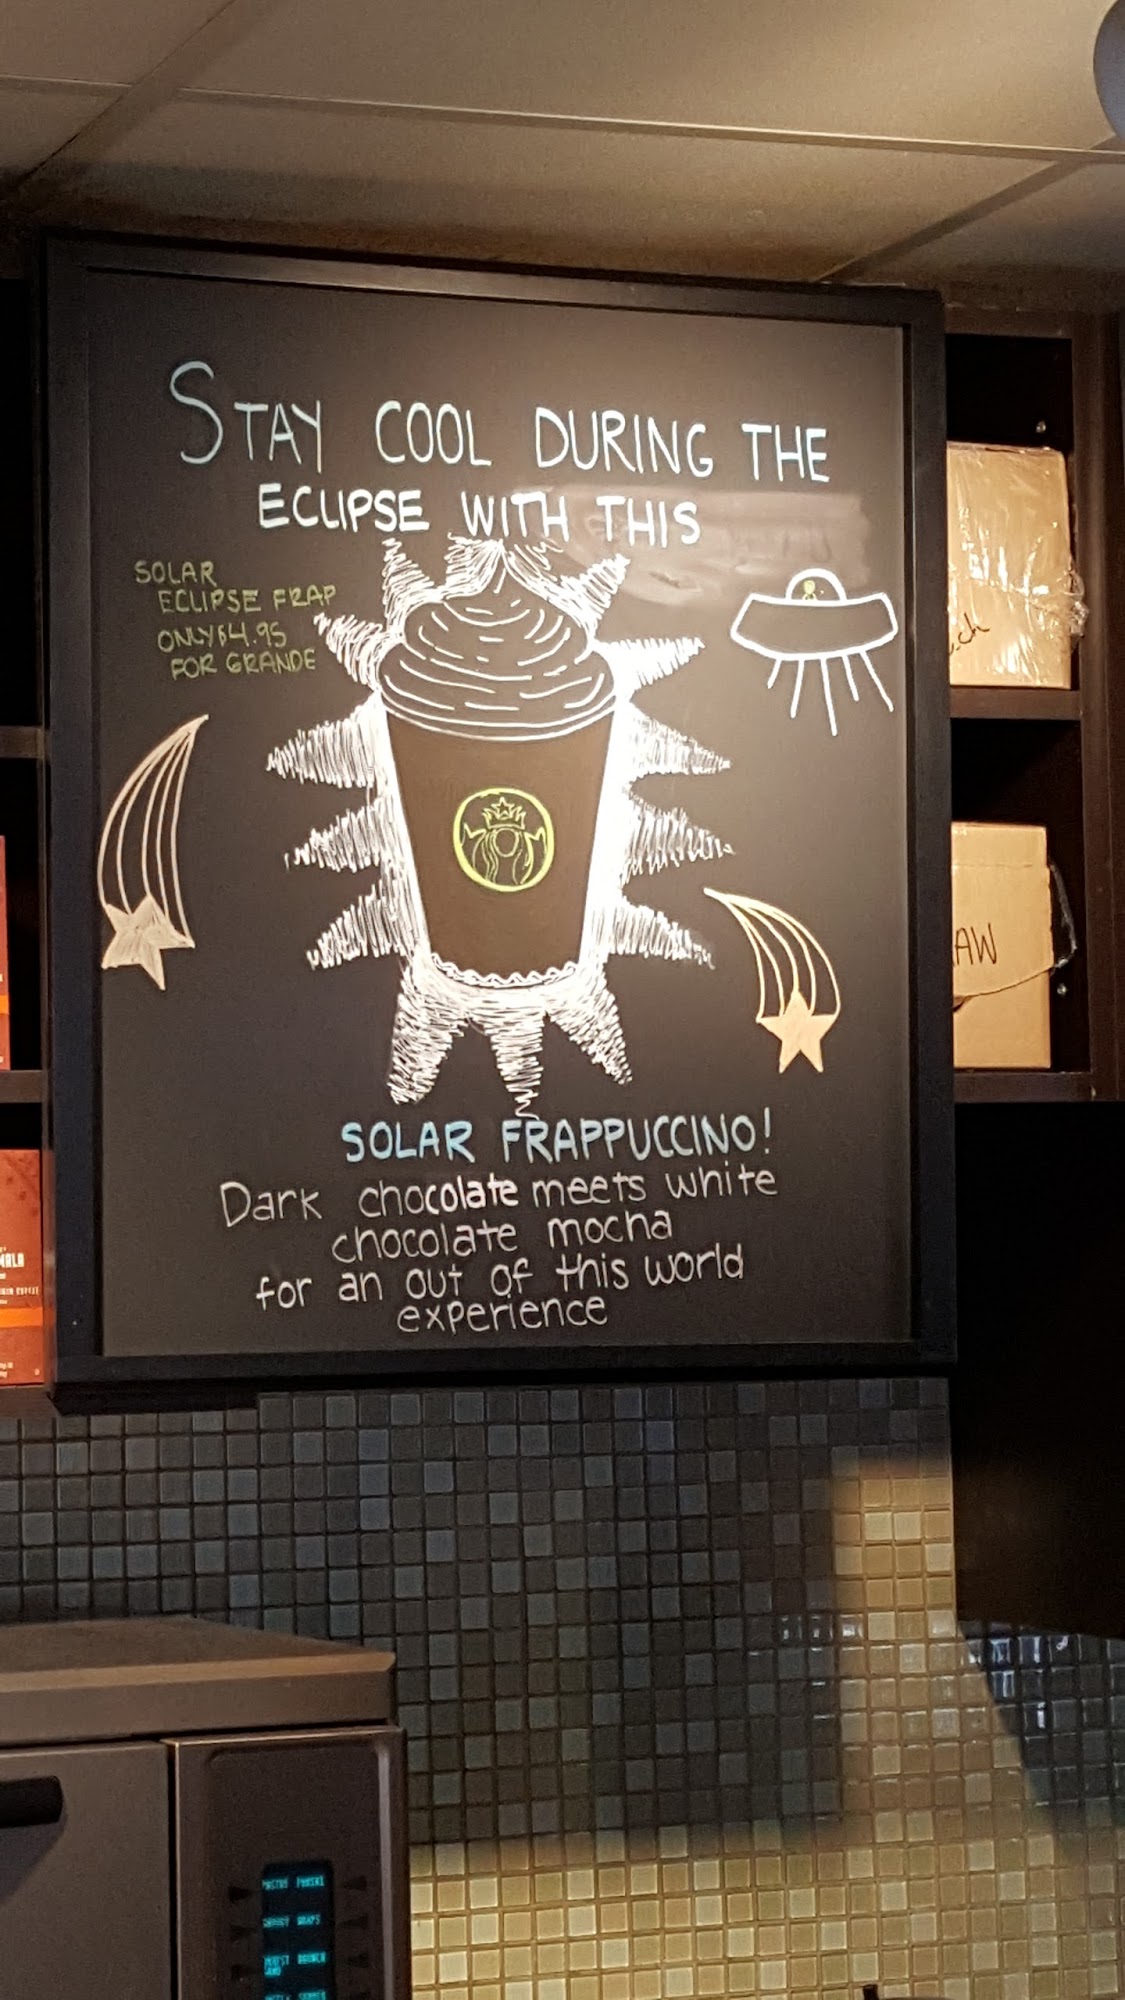 STAY COOL DURING THE
ECLIPSE WITH THIS
SOLAR
ECLIPSE FRAP
ONLY $4.95
FOR GRANDE
SOLAR FRAPPUCCINO!
Dark chocolate meets white
chocolate mocha
for an out of this world
experience
AW